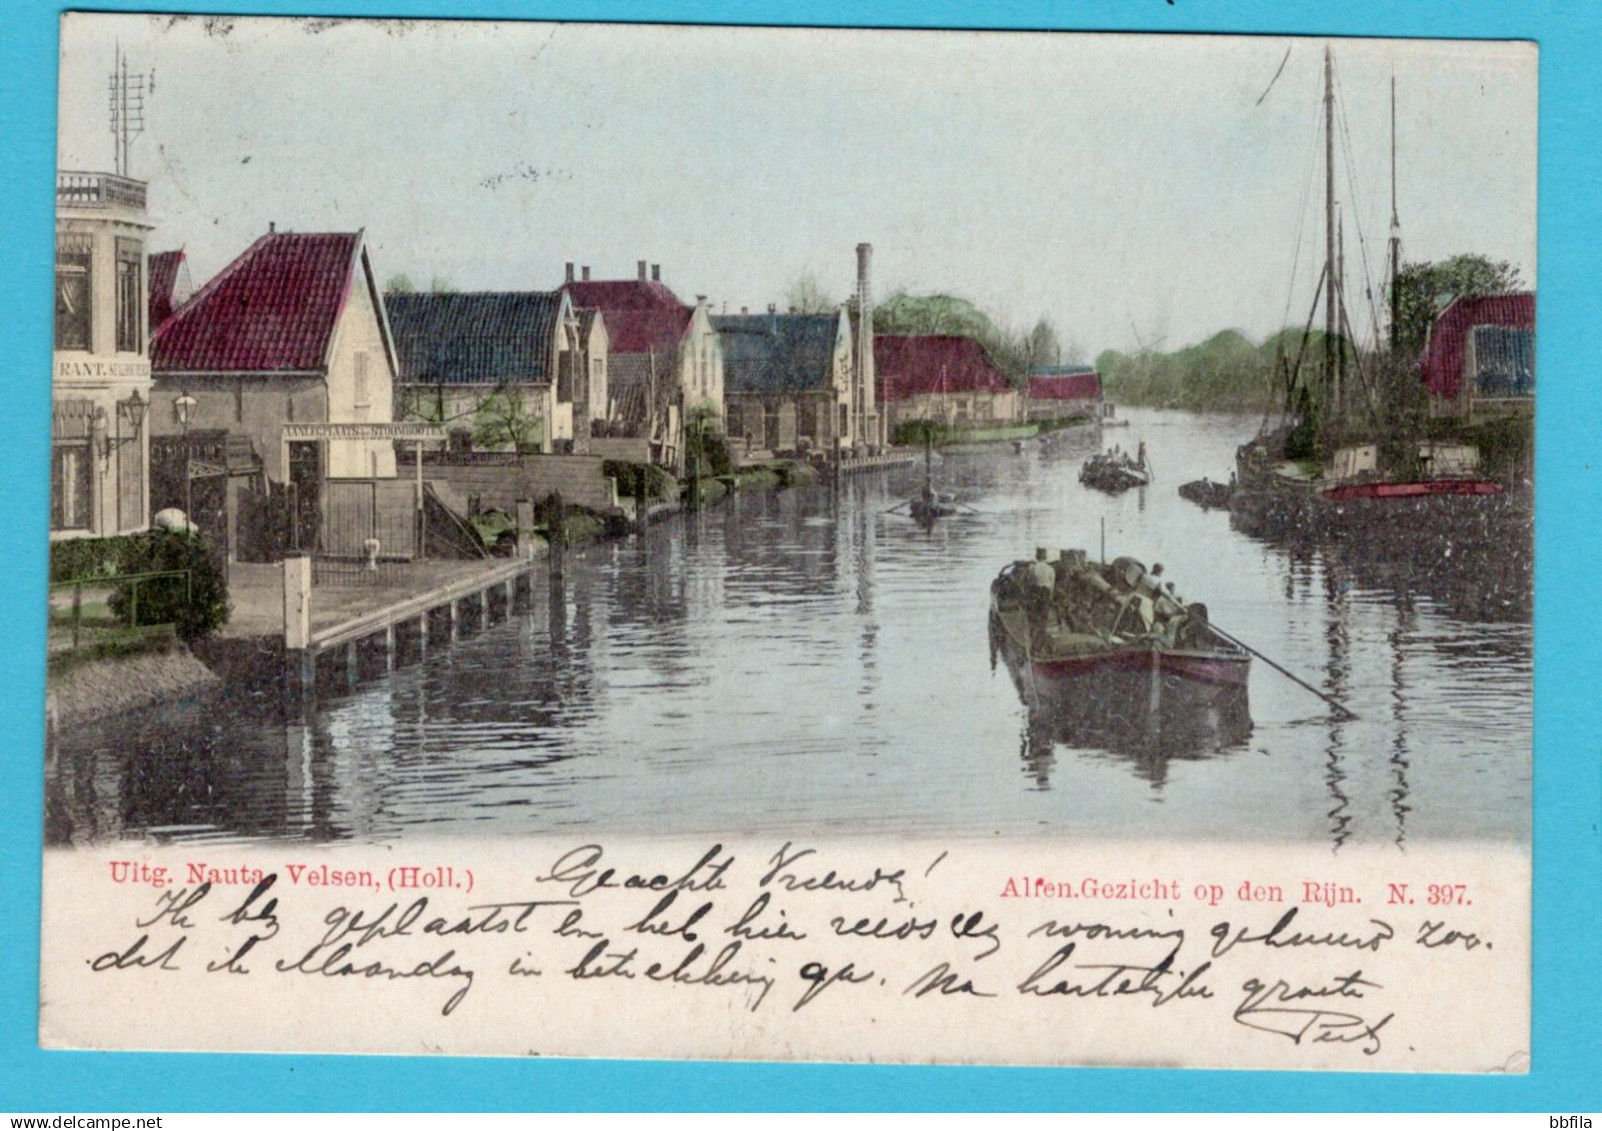 RANT. STALHOUDER
AANLEGPLAATS der STOOMBOOTEN
Uitg. Nauta, Velsen, (Holl.)
Alfen. Gezicht op den Rijn. N. 397.
Geachte Vriend!
Ik ben geplaatst en heb hier reeds een woning gehuurd zoo.
dat ik Maandag in betrekking ga. Na hartelijke groete
Piet.
bbfila